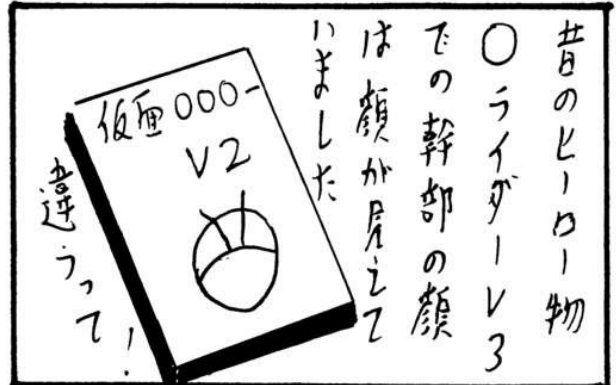 昔のヒーロー物
〇ライダーV3
での幹部の顔
は顔が見えて
いました
仮面〇〇〇ー
V2
違うって!